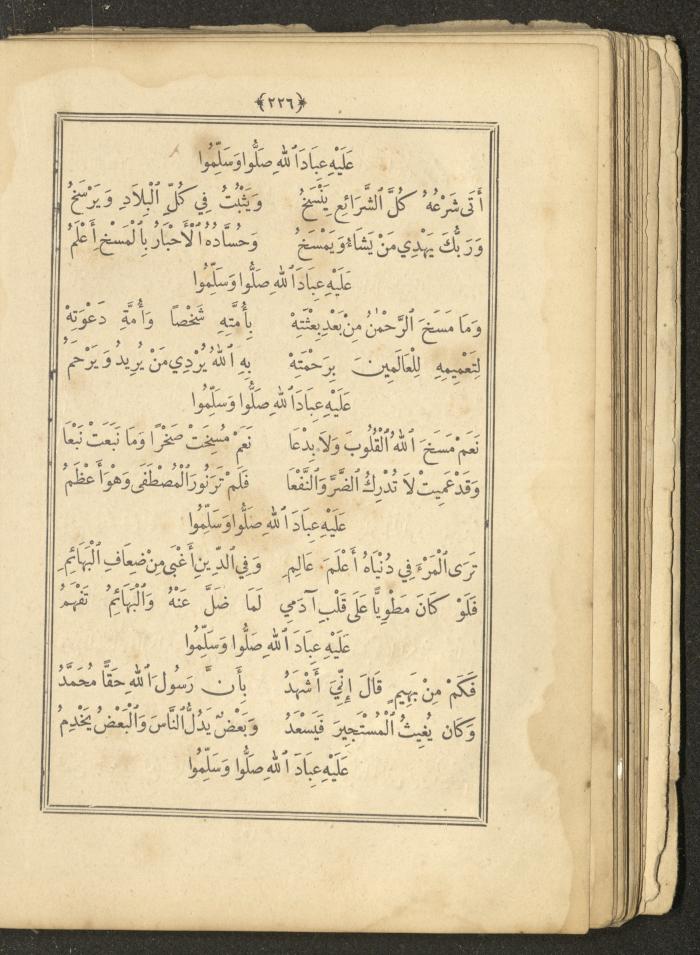 ﴿٢٢٦﴾
عَلَيْهِ عِبَادَ ٱللهِ صَلُّوا وَسَلِّمُوا
أَتَى شَرْعُهُ كُلَّ ٱلشَّرَائِعِ يَنْسَخُ وَيَثْبُتُ فِي كُلِّ ٱلْبِلَادِ وَيَرْسَخُ
وَرَبُّكَ يَهْدِي مَنْ يَشَاءُ وَيَمْسَخُ وَحُسَّادُهُ ٱلْأَحْبَارُ بِٱلْمَسْخِ أَعْلَمُ
عَلَيْهِ عِبَادَ ٱللهِ صَلُّوا وَسَلِّمُوا
وَمَا مَسَخَ ٱلرَّحْمٰنُ مِنْ بَعْدِ بِعْثَتِهْ بِأُمَّتِهِ شَخْصًا وَأُمَّةِ دَعْوَتِهْ
لِتَعْمِيمِهِ لِلْعَالَمِينَ بِرَحْمَتِهْ بِهِ ٱللهُ يُرْدِي مَنْ يُرِيدُ وَيَرْحَمُ
عَلَيْهِ عِبَادَ ٱللهِ صَلُّوا وَسَلِّمُوا
نَعَمْ مَسَخَ ٱللهُ ٱلْقُلُوبَ وَلَا بِدْعَا نَعَمْ مُسِخَتْ صَخْرًا وَمَا نَبَعَتْ نَبْعَا
وَقَدْ عَمِيتْ لَا تُدْرِكُ ٱلضَّرَّ وَٱلنَّفْعَا فَلَمْ تَرَ نُورَ ٱلْمُصْطَفَى وَهْوَ أَعْظَمُ
عَلَيْهِ عِبَادَ ٱللهِ صَلُّوا وَسَلِّمُوا
تَرَى ٱلْمَرْءَ فِي دُنْيَاهُ أَعْلَمَ عَالِمِ وَفِي ٱلدِّينِ أَغْبَى مِنْ ضِعَافِ ٱلْبَهَائِمِ
فَلَوْ كَانَ مَطْوِيًّا عَلَى قَلْبِ آدَمِي لَمَا ضَلَّ عَنْهُ وَٱلْبَهَائِمُ تَفْهَمُ
عَلَيْهِ عِبَادَ ٱللهِ صَلُّوا وَسَلِّمُوا
فَكَمْ مِنْ بَهِيمٍ قَالَ إِنِّيَ أَشْهَدُ بِأَنَّ رَسُولَ ٱللهِ حَقًّا مُحَمَّدُ
وَكَان يُغِيثُ ٱلْمُسْتَجِيرَ فَيَسْعَدُ وَبَعْضٌ يَدُلُّ ٱلنَّاسَ وَٱلْبَعْضُ يَخْدِمُ
عَلَيْهِ عِبَادَ ٱللهِ صَلُّوا وَسَلِّمُوا